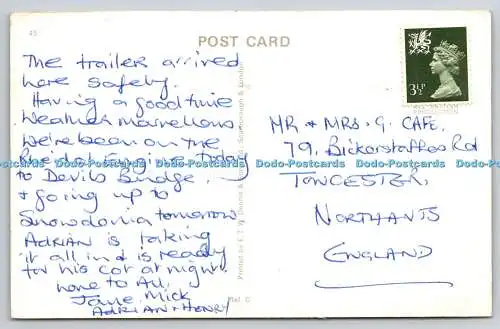 45
POST CARD
3½P
The trailer arrived
here safely.
Having a good time
weather marvellous.
We're been on the
Engine Today
to Devils Bridge
& going up to
Snowdonia tomorrow.
ADRIAN is taking
it all in & is ready
for his cot at night.
love to All,
Jane, Mick
ADRIAN & HENRY
MR & MRS. G. CAFE,
79, Bickerstaffes Rd
TOWCESTER,
NORTHANTS
ENGLAND
Printed by E. T. W. Dennis & Sons Ltd., Scarborough & London
Dodo-Postcards Dodo-Postcards Dodo-Postcards Dodo-Postcards Dodo-Postcards